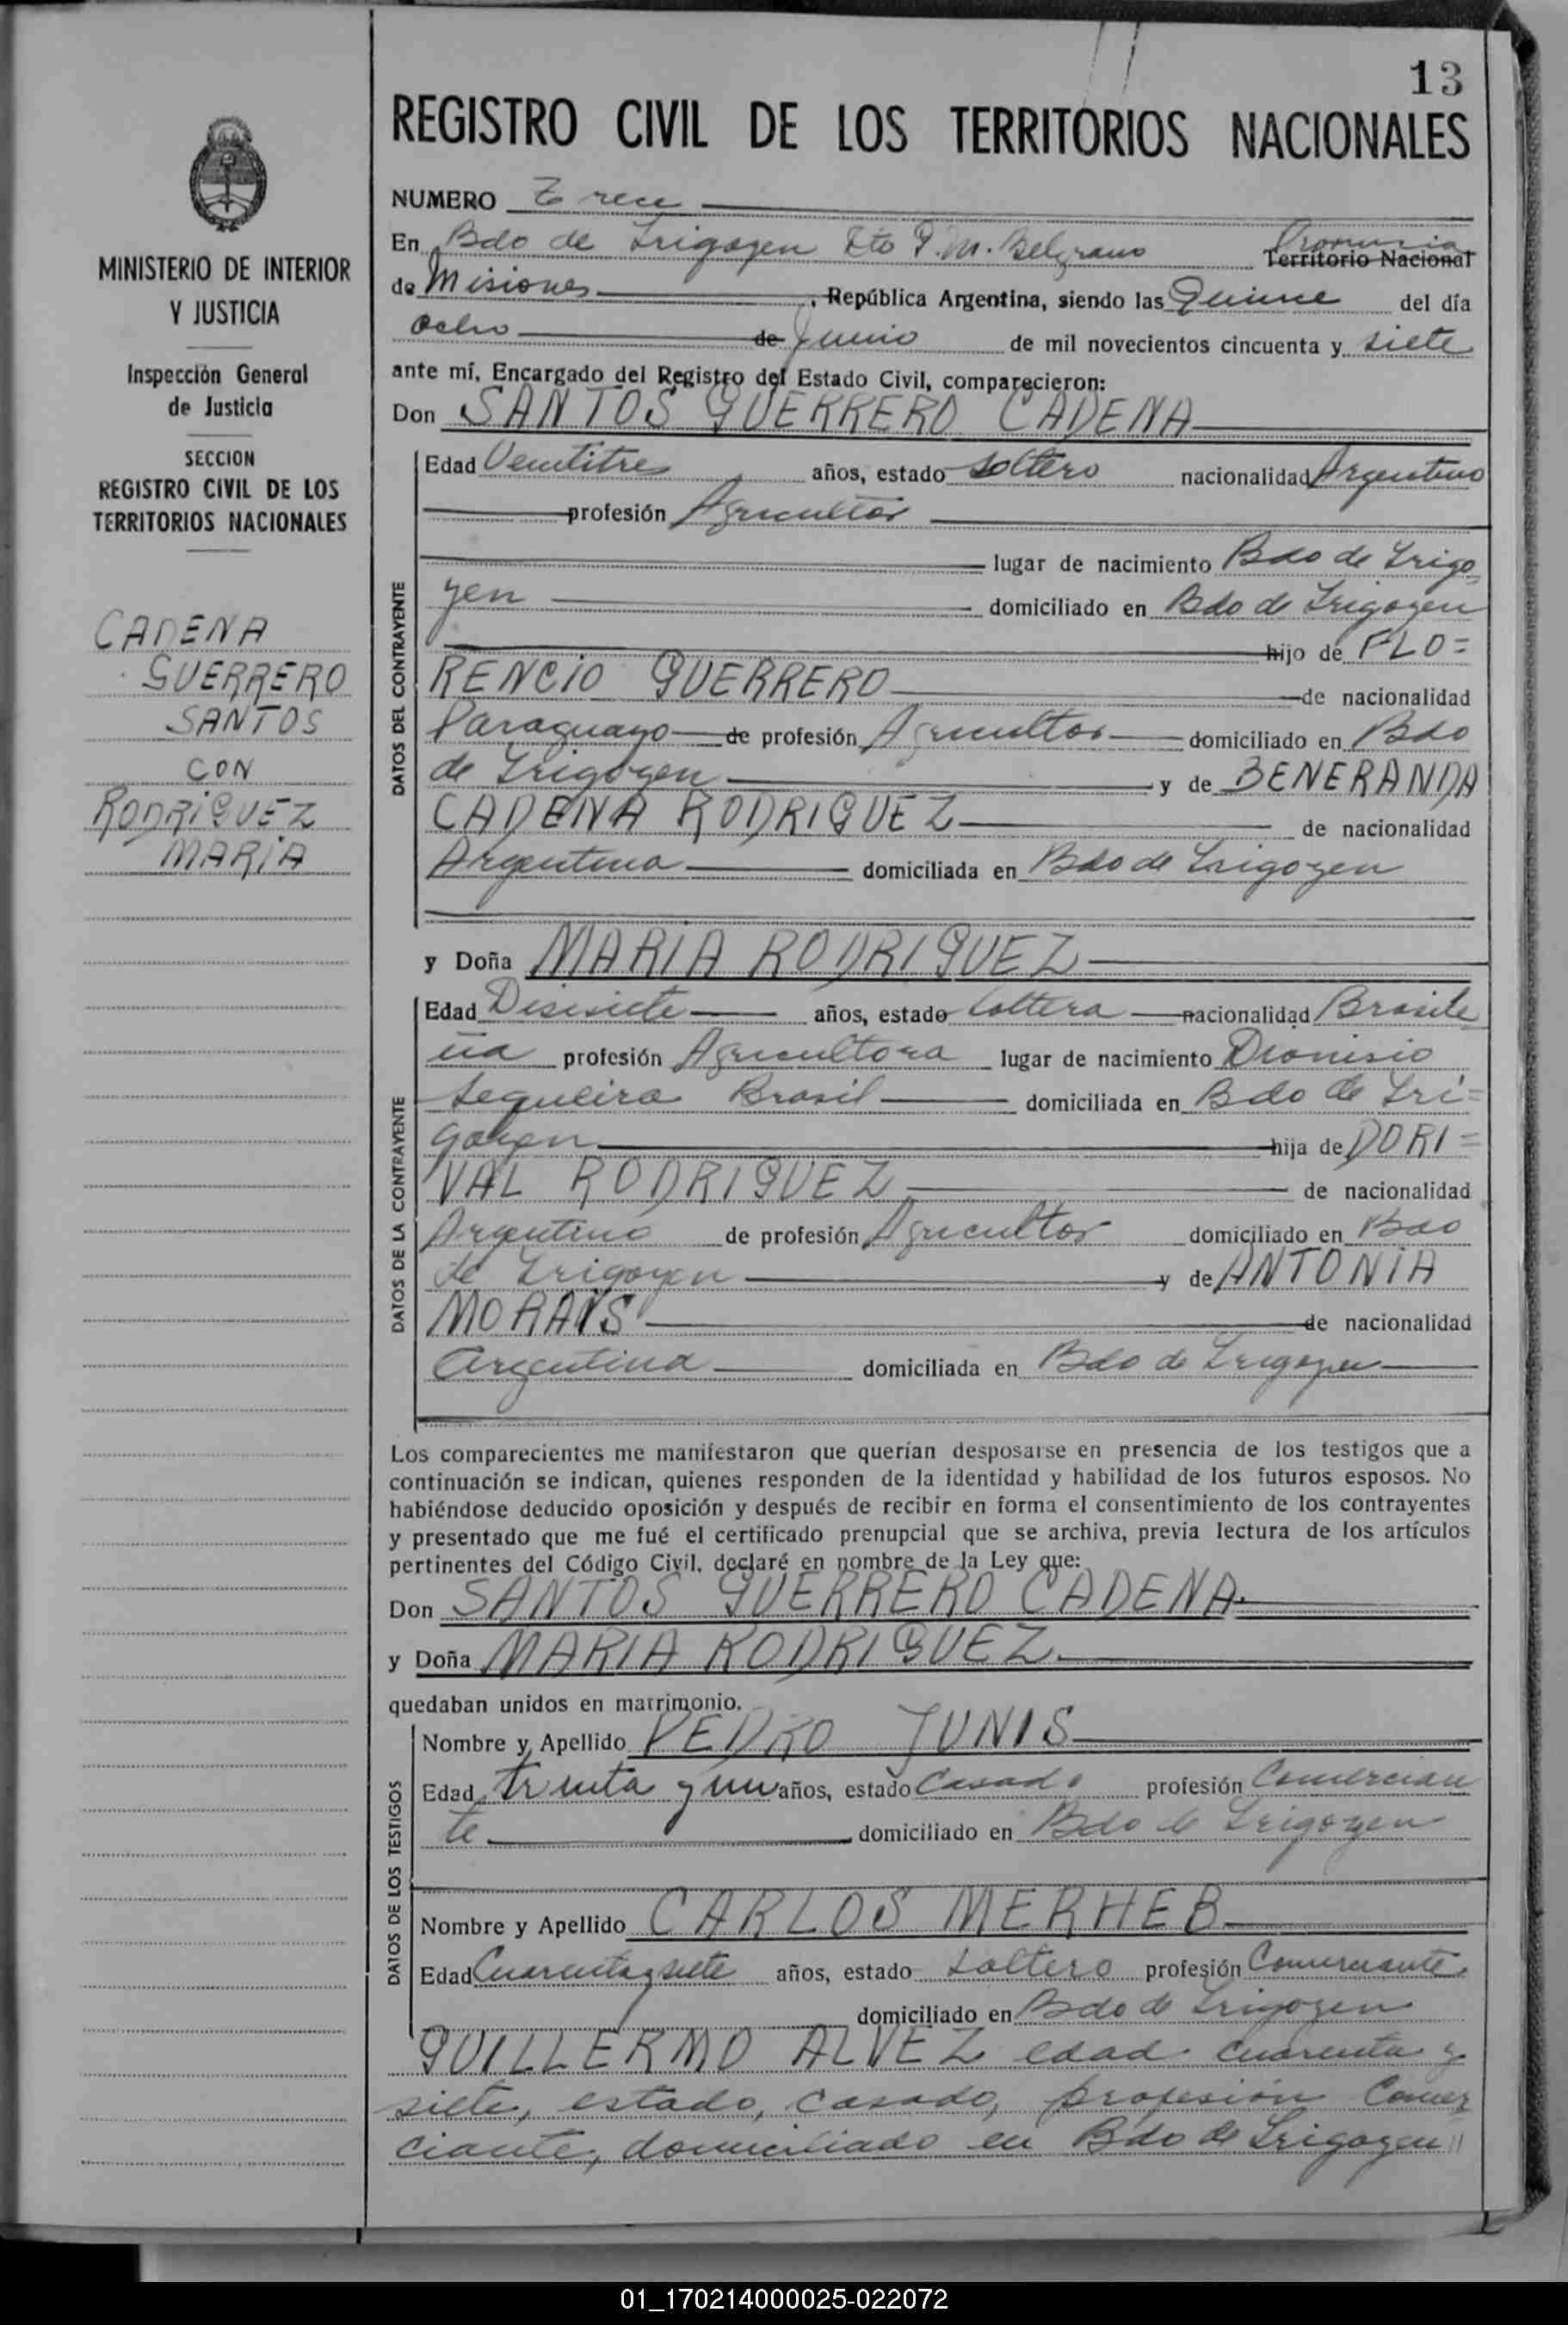 13
REGISTRO CIVIL DE LOS TERRITORIOS NACIONALES
MINISTERIO DE INTERIOR
Y JUSTICIA
Inspección General
de Justicia
SECCION
REGISTRO CIVIL DE LOS
TERRITORIOS NACIONALES
CADENA
GUERRERO
SANTOS
CON
RODRIGUEZ
MARIA
NUMERO Trece
En Bdo de Irigoyen Dto G. M. Belgrano Provincia Territorio Nacional
de Misiones, República Argentina, siendo las Quince del día
ocho de Junio de mil novecientos cincuenta y siete
ante mí, Encargado del Registro del Estado Civil, comparecieron:
Don SANTOS GUERRERO CADENA
DATOS DEL CONTRAYENTE
Edad Veintitres años, estado soltero nacionalidad Argentino
profesión Agricultor
lugar de nacimiento Bdo de Irigo
yen domiciliado en Bdo de Irigoyen
hijo de FLO=
RENCIO GUERRERO de nacionalidad
Paraguayo de profesión Agricultor domiciliado en Bdo
de Irigoyen y de BENERANDA
CADENA RODRIGUEZ de nacionalidad
Argentina domiciliada en Bdo de Irigoyen
y Doña MARIA RODRIGUEZ
DATOS DE LA CONTRAYENTE
Edad Disisiete años, estado soltera nacionalidad Brasile
ña profesión Agricultora lugar de nacimiento Dionisio
Sequeira Brasil domiciliada en Bdo de Iri=
goyen hija de DORI=
VAL RODRIGUEZ de nacionalidad
Argentino de profesión Agricultor domiciliado en Bdo
de Irigoyen y de ANTONIA
MORAYS de nacionalidad
Argentina domiciliada en Bdo de Irigoyen
Los comparecientes me manifestaron que querían desposarse en presencia de los testigos que a
continuación se indican, quienes responden de la identidad y habilidad de los futuros esposos. No
habiéndose deducido oposición y después de recibir en forma el consentimiento de los contrayentes
y presentado que me fué el certificado prenupcial que se archiva, previa lectura de los artículos
pertinentes del Código Civil, declaré en nombre de la Ley que:
Don SANTOS GUERRERO CADENA.
y Doña MARIA RODRIGUEZ.
quedaban unidos en matrimonio.
DATOS DE LOS TESTIGOS
Nombre y Apellido PEDRO JUNIS
Edad treinta y un años, estado Casado profesión Comercian
te domiciliado en Bdo de Irigoyen
Nombre y Apellido CARLOS MERHEB
Edad Cuarenta y siete años, estado soltero profesión Comerciante
domiciliado en Bdo de Irigoyen
GUILLERMO ALVEZ edad cuarenta y
siete, estado, casado, profesión Comer
ciante, domiciliado en Bdo de Irigoyen //
01_170214000025-022072